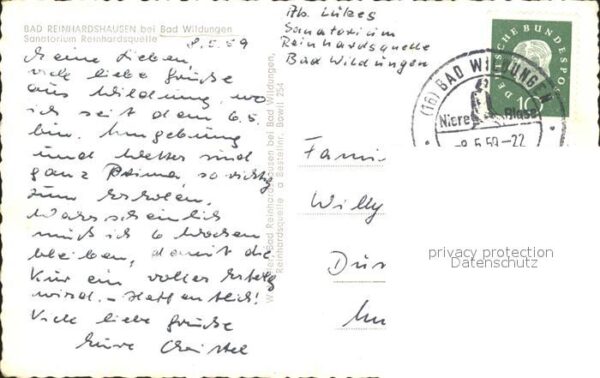 BAD REINHARDSHAUSEN bei Bad Wildungen
Sanatorium Reinhardsquelle
8.5.59
Meine Lieben,
viele liebe Grüsse
aus Wildung, wo
ich seit dem 6.5.
bin. Umgebung
und Wetter sind
ganz Prima, so richtig
zum Erholen.
Wahrscheinlich
muß ich 6 Wochen
bleiben, damit die
Kur ein voller Erfolg
wird. – Hoffentlich!
Viele liebe Grüsse
Eure Christel
Bad Reinhardshausen bei Bad Wildungen,
Reinhardsquelle Bestellnr.
Abs. Lükes
Sanatorium
Reinhardsquelle
Bad Wildungen
DEUTSCHE BUNDESPOST
10
(16) BAD WILDUNGEN
Niere Blase
-8.5.59-22
Fami
Willy
Dü
privacy protection
Datenschutz